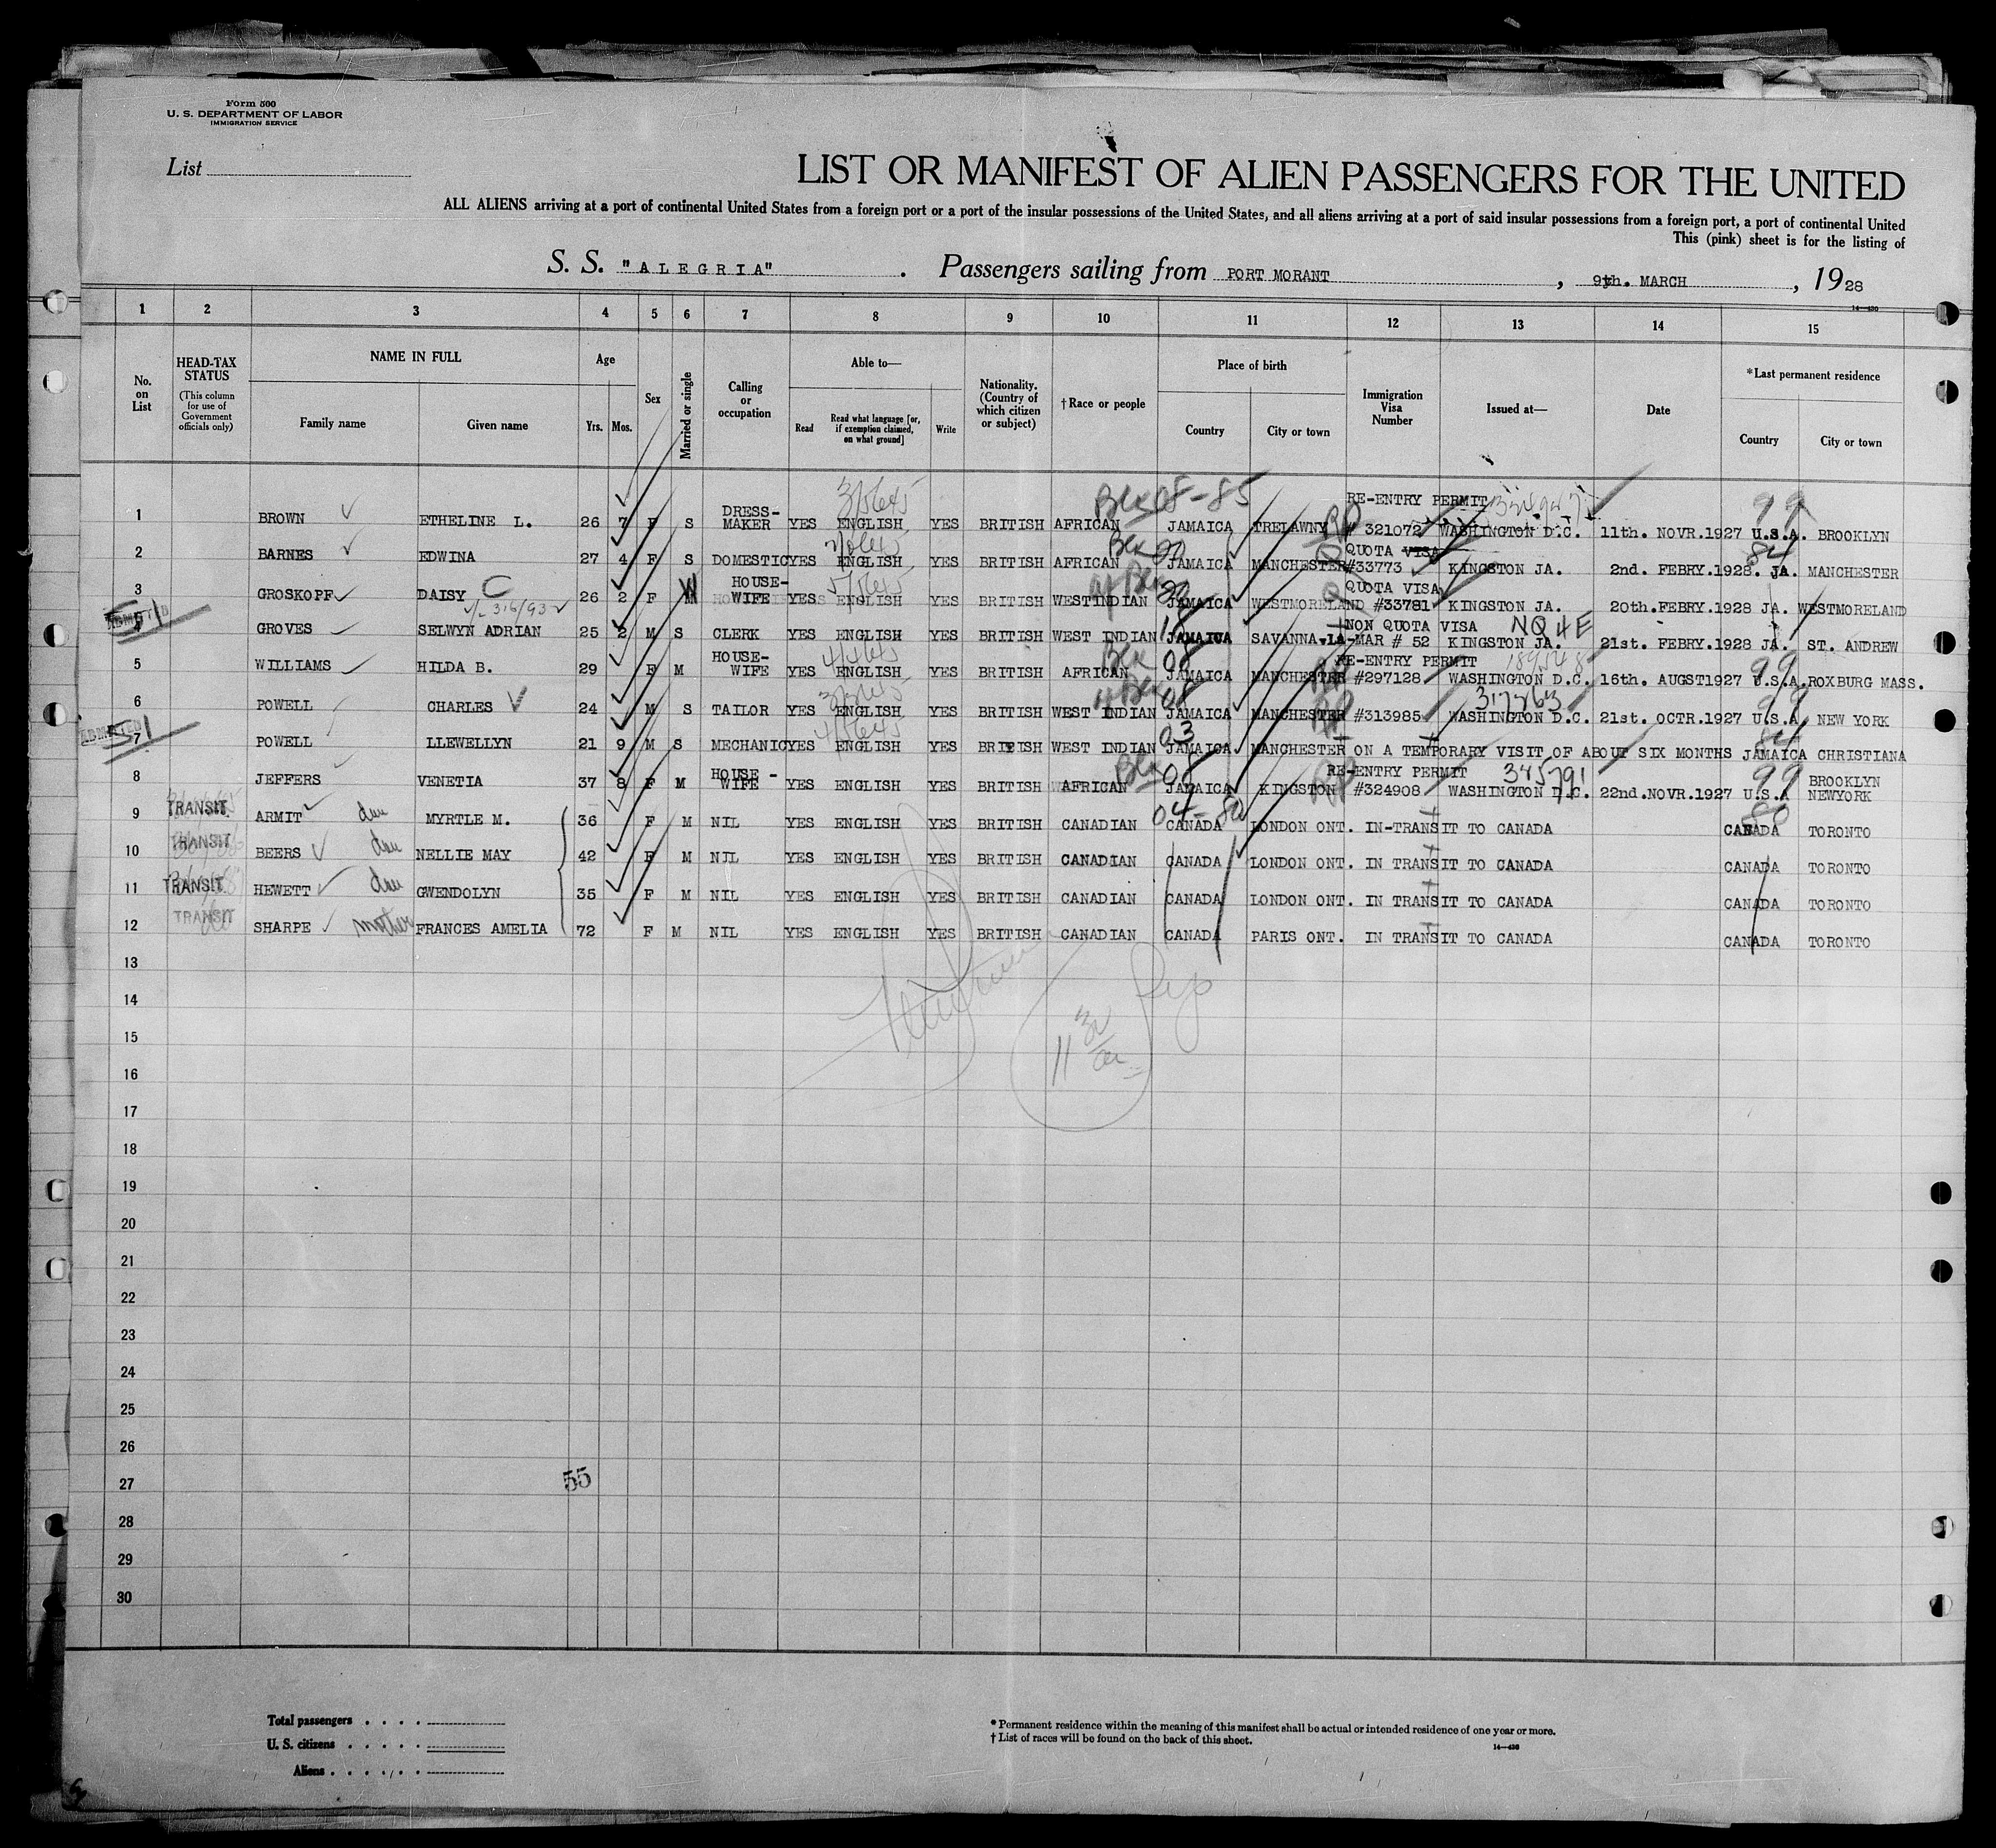 Form 500
U. S. DEPARTMENT OF LABOR
IMMIGRATION SERVICE
List
LIST OR MANIFEST OF ALIEN PASSENGERS FOR THE UNITED
ALL ALIENS arriving at a port of continental United States from a foreign port or a port of the insular possessions of the United States, and all aliens arriving at a port of said insular possessions from a foreign port, a port of continental United
This (pink) sheet is for the listing of
S. S. "ALEGRIA" . Passengers sailing from PORT MORANT , 9th. MARCH , 1928
14—430
1 2 3 4 5 6 7 8 9 10 11 12 13 14 15
No. on List
HEAD-TAX STATUS
(This column for use of Government officials only)
NAME IN FULL
Family name Given name
Age
Yrs. Mos.
Sex
Married or single
Calling or occupation
Able to—
Read Read what language [or, if exemption claimed, on what ground] Write
Nationality. (Country of which citizen or subject)
†Race or people
Place of birth
Country City or town
Immigration Visa Number
Issued at—
Date
*Last permanent residence
Country City or town
1 BROWN ETHELINE L. 26 7 F S DRESS-MAKER YES ENGLISH YES BRITISH AFRICAN Blk 08-85 JAMAICA TRELAWNY RP RE-ENTRY PERMIT # 321072 WASHINGTON D.C. 11th. NOVR.1927 99 U.S.A. BROOKLYN
2 BARNES EDWINA 27 4 F S DOMESTIC YES ENGLISH YES BRITISH AFRICAN Blk JAMAICA MANCHESTER Q QUOTA VISA #33773 KINGSTON JA. 2nd. FEBRY.1928. 84 JA. MANCHESTER
3 GROSKOPF DAISY C 26 2 F M HOUSE-WIFE YES ENGLISH YES BRITISH WESTINDIAN JAMAICA WESTMORELAND Q QUOTA VISA #33781 KINGSTON JA. 20th.FEBRY.1928 JA. WESTMORELAND
ADMITTED 51
4 GROVES SELWYN ADRIAN 25 2 M S CLERK YES ENGLISH YES BRITISH WEST INDIAN JAMAICA SAVANNA-LA-MAR NON QUOTA VISA # 52 NQ 4E KINGSTON JA. 21st. FEBRY.1928 JA. ST. ANDREW
5 WILLIAMS HILDA B. 29 F M HOUSE-WIFE YES ENGLISH YES BRITISH AFRICAN Blk 08 JAMAICA MANCHESTER RP RE-ENTRY PERMIT #297128 WASHINGTON D.C. 16th. AUGST1927 99 U.S.A. ROXBURG MASS.
6 POWELL CHARLES 24 M S TAILOR YES ENGLISH YES BRITISH WEST INDIAN 08 JAMAICA MANCHESTER RP #313985 317263 WASHINGTON D.C. 21st. OCTR.1927 99 U.S.A. NEW YORK
ADMITTED 51
7 POWELL LLEWELLYN 21 9 M S MECHANIC YES ENGLISH YES BRITISH WEST INDIAN 03 JAMAICA. MANCHESTER ON A TEMPORARY VISIT OF ABOUT SIX MONTHS 84 JAMAICA CHRISTIANA
8 JEFFERS VENETIA 37 8 F M HOUSE-WIFE YES ENGLISH YES BRITISH AFRICAN Blk 08 JAMAICA KINGSTON RP RE-ENTRY PERMIT #324908 345791 WASHINGTON D.C. 22nd.NOVR.1927 99 U.S.A BROOKLYN NEWYORK
9 TRANSIT. ARMIT dau MYRTLE M. 36 F M NIL YES ENGLISH YES BRITISH CANADIAN 04-80 CANADA LONDON ONT. IN-TRANSIT TO CANADA 80 CANADA TORONTO
10 TRANSIT BEERS dau NELLIE MAY 42 F M NIL YES ENGLISH YES BRITISH CANADIAN CANADA LONDON ONT. IN TRANSIT TO CANADA CANADA TORONTO
11 TRANSIT. HEWETT dau GWENDOLYN 35 F M NIL YES ENGLISH YES BRITISH CANADIAN CANADA LONDON ONT. IN TRANSIT TO CANADA CANADA TORONTO
12 TRANSIT SHARPE mother FRANCES AMELIA 72 F M NIL YES ENGLISH YES BRITISH CANADIAN CANADA PARIS ONT. IN TRANSIT TO CANADA CANADA TORONTO
13
14
15
16
17
18
19
20
21
22
23
24
25
26
27
55
28
29
30
Total passengers
U. S. citizens
Aliens
*Permanent residence within the meaning of this manifest shall be actual or intended residence of one year or more.
†List of races will be found on the back of this sheet.
14—430